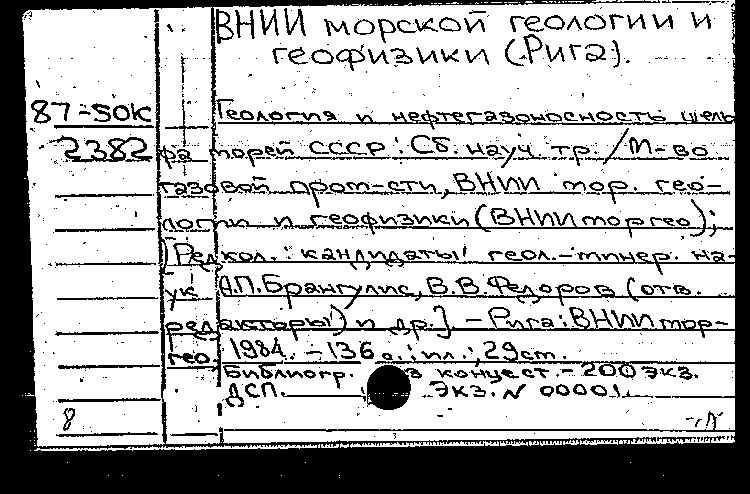 ВНИИ морской геологии и
геофизики (Рига).
87-50К
2382
Геология и нефтегазоносность шель
фа морей СССР: Сб. науч. тр. / М-во
газовой пром-сти, ВНИИ мор. гео-
логии и геофизики (ВНИИморгео);
[Редкол.: кандидаты геол.-минер. на-
ук А.П. Брангулис, В.В. Федоров (отв.
редакторы) и др.]. - Рига: ВНИИмор-
гео, 1984. - 136 с.: ил.; 29 см.
Библиогр. в конце ст. - 200 экз.
ДСП. Экз. N 00001.
8